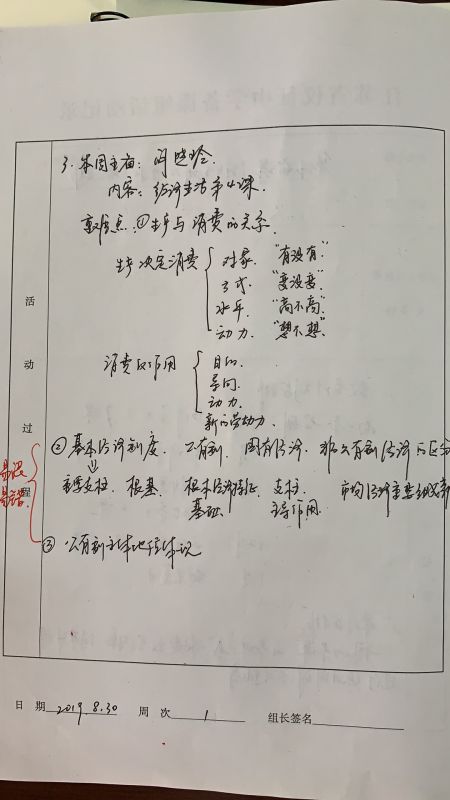 3. 本周主备：闫晓玲.
内容：经济生活第4课.
重难点：①生产与消费的关系.
生产决定消费
对象. "有没有".
方式. "变没变".
水平. "高不高".
动力. "想不想".
消费反作用
目的.
导向.
动力.
新的劳动力.
②基本经济制度. 公有制. 国有经济. 非公有制经济的区分
重要支柱. 根基. 根本经济特征. 支柱. 市场经济重要组成部
基础. 主导作用.
③公有制主体地位体现
活动过程
易混
易错
日 期 2019.8.30 周 次 1 组长签名